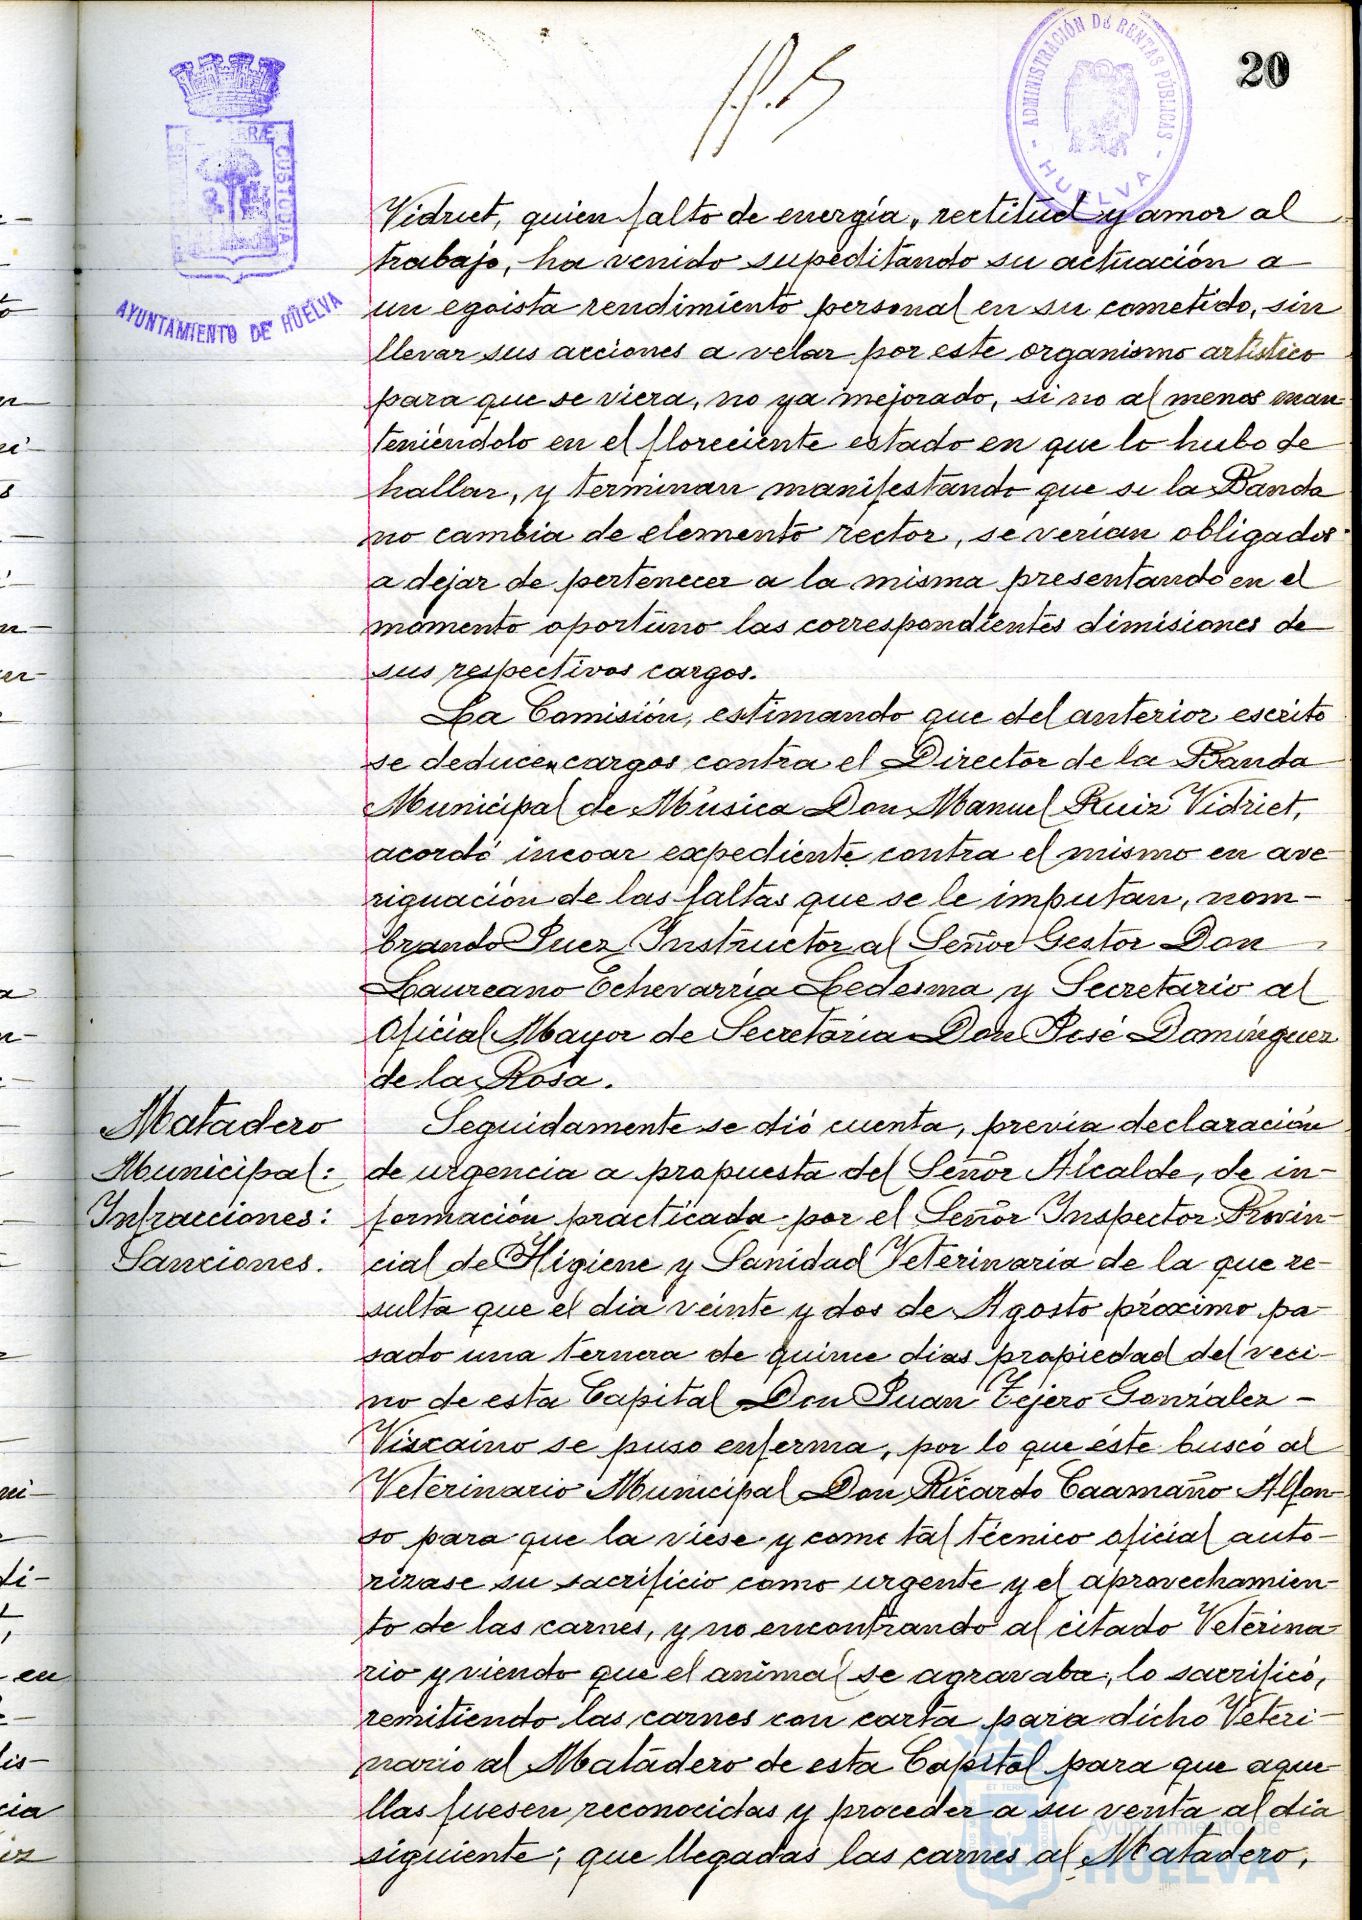 20
ADMINISTRACIÓN DE RENTAS PÚBLICAS
HUELVA
CUSTODIA
AYUNTAMIENTO DE HUELVA
Vidriet, quien falto de energía, rectitud y amor al
trabajo, ha venido supeditando su actuación a
un egoista rendimiento personal en su cometido, sin
llevar sus acciones a velar por este organismo artístico
para que se viera, no ya mejorado, si no al menos man-
teniéndolo en el floreciente estado en que lo hubo de
hallar, y terminan manifestando que si la Banda
no cambia de elemento rector, se verían obligados
a dejar de pertenecer a la misma presentando en el
momento oportuno las correspondientes dimisiones de
sus respectivos cargos.
La Comisión, estimando que del anterior escrito
se deducen cargos contra el Director de la Banda
Municipal de Música Don Manuel Ruiz Vidriet,
acordó incoar expediente contra el mismo en ave-
riguación de las faltas que se le imputan, nom-
brando Juez Instructor al Señor Gestor Don
Laureano Echevarría Ledesma y Secretario al
Oficial Mayor de Secretaria Don José Domínguez
de la Rosa.
Matadero
Municipal:
Infracciones:
Sanciones.
Seguidamente se dió cuenta, previa declaración
de urgencia a propuesta del Señor Alcalde, de in-
formación practicada por el Señor Inspector Provin-
cial de Higiene y Sanidad Veterinaria de la que re-
sulta que el dia veinte y dos de Agosto próximo pa-
sado una ternera de quince dias propiedad del veci-
no de esta Capital Don Juan Tejero González-
Viscaino se puso enferma, por lo que éste buscó al
Veterinario Municipal Don Ricardo Caamaño Alfon-
so para que la viese y como tal técnico oficial auto-
rizase su sacrificio como urgente y el aprovechamien-
to de las carnes, y no encontrando al citado Veterina-
rio y viendo que el animal se agravaba, lo sacrificó,
remitiendo las carnes con carta para dicho Veteri-
nario al Matadero de esta Capital para que aque-
llas fuesen reconocidas y proceder a su venta al dia
siguiente; que llegadas las carnes al Matadero,
Ayuntamiento de
HUELVA